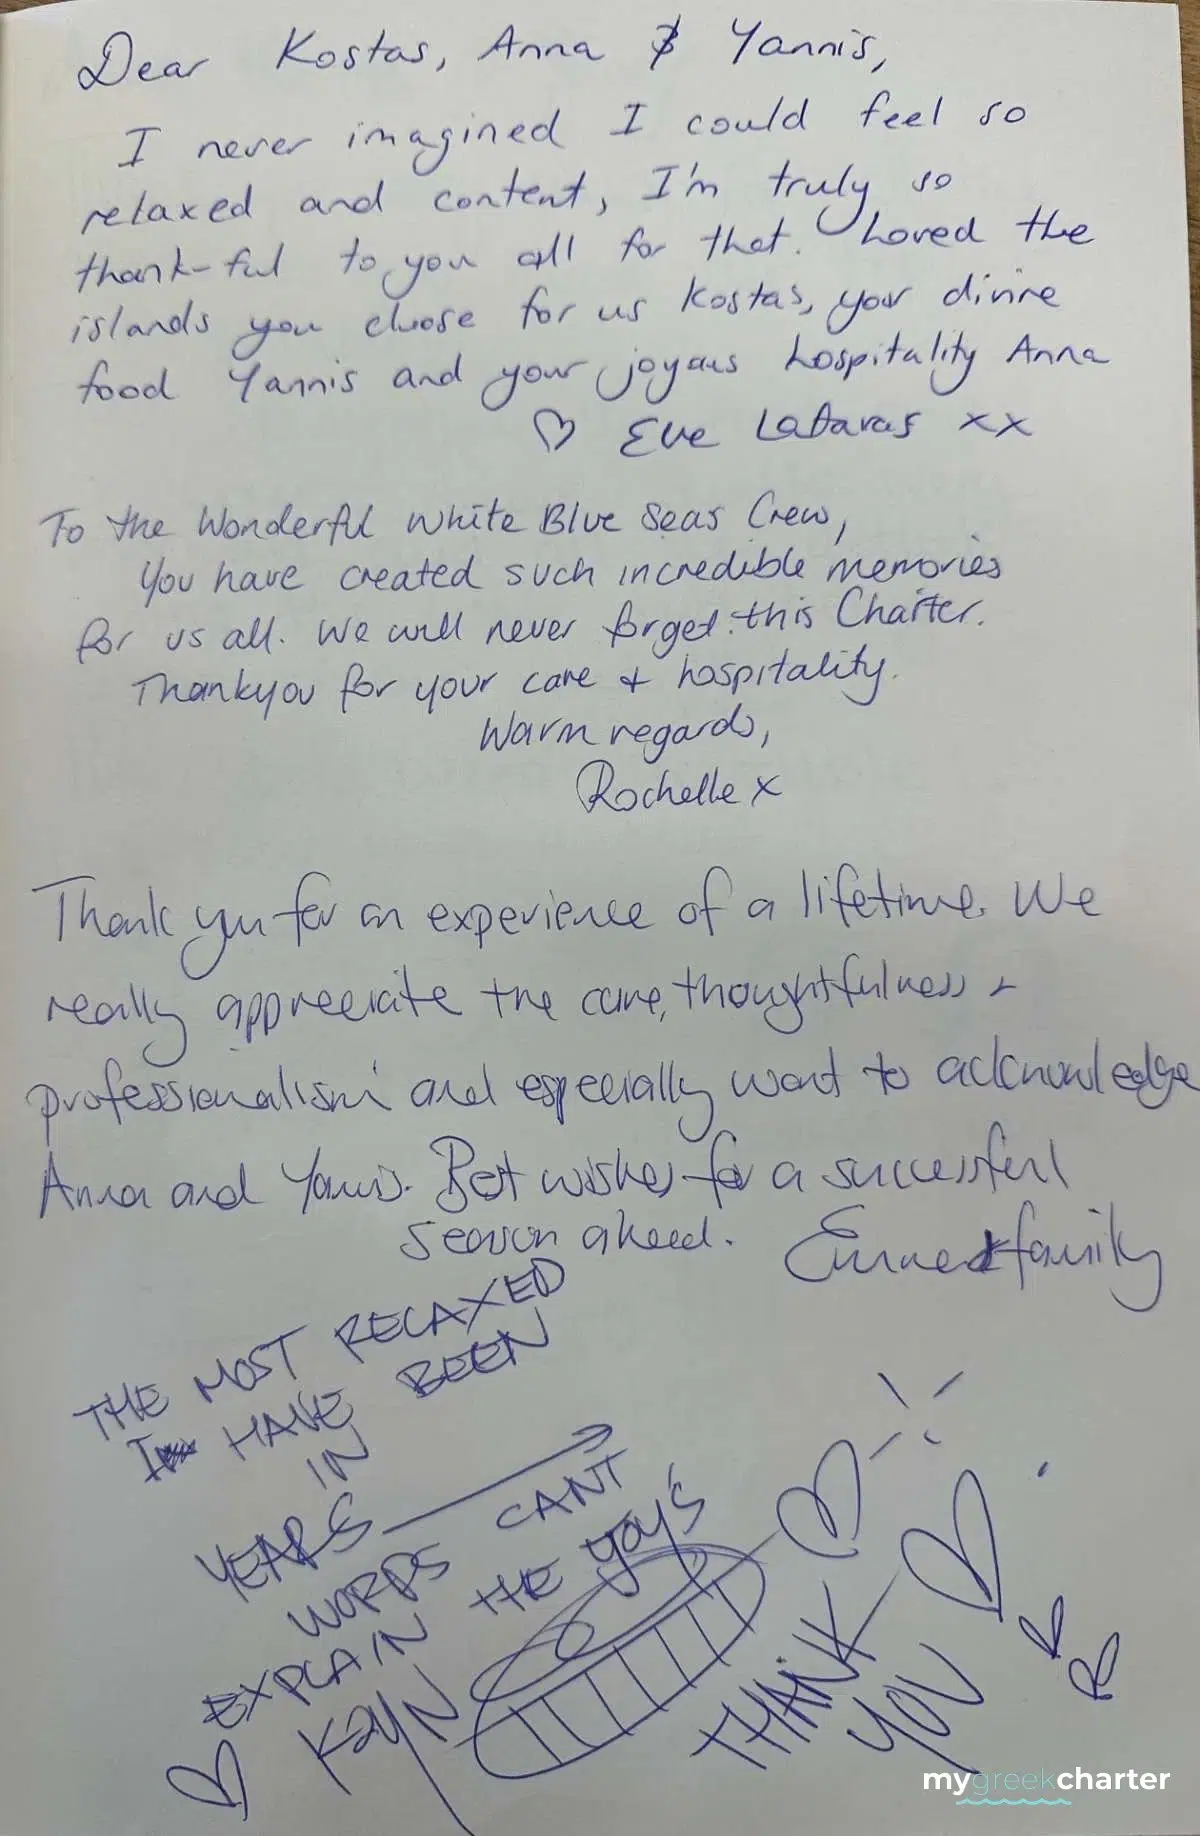 Dear Kostas, Anna & Yannis,
I never imagined I could feel so
relaxed and content, I'm truly so
thank-ful to you all for that. Loved the
islands you chose for us Kostas, your divine
food Yannis and your joyous hospitality Anna
♡ Eve xx
To the Wonderful White Blue Seas Crew,
You have created such incredible memories
for us all. We will never forget this Charter.
Thankyou for your care + hospitality.
Warm regards,
Rochelle x
Thank you for an experience of a lifetime. We
really appreciate the care, thoughtfulness +
professionalism and especially want to acknowledge
Anna and Yannis. Best wishes for a successful
season ahead. & family
THE MOST RELAXED
I HAVE BEEN
IN
YEARS →
WORDS CANT
EXPLAIN THE YOY'S
♡ KAYN
THANK
YOU
mygreekcharter